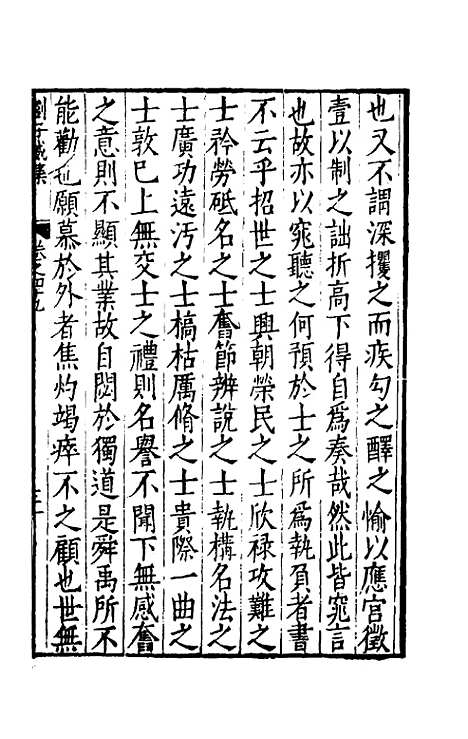 也又不謂深攫之而疾勾之醳之愉以應宫徵
壹以制之詘折高下得自爲奏哉然此皆窕言
也故亦以窕聽之何預於士之所爲執負者書
不云乎招世之士興朝榮民之士欣禄攻難之
士矜勞砥名之士奮節辨說之士執構名法之
士廣功遠汚之士槁枯厲脩之士貴際一曲之
士敦已上無交士之禮則名譽不聞下無感奮
之意則不顯其業故自閟於獨道是舜禹所不
能勸也願慕於外者焦灼竭瘁不之顧也世無
劉子威集
卷之四十九